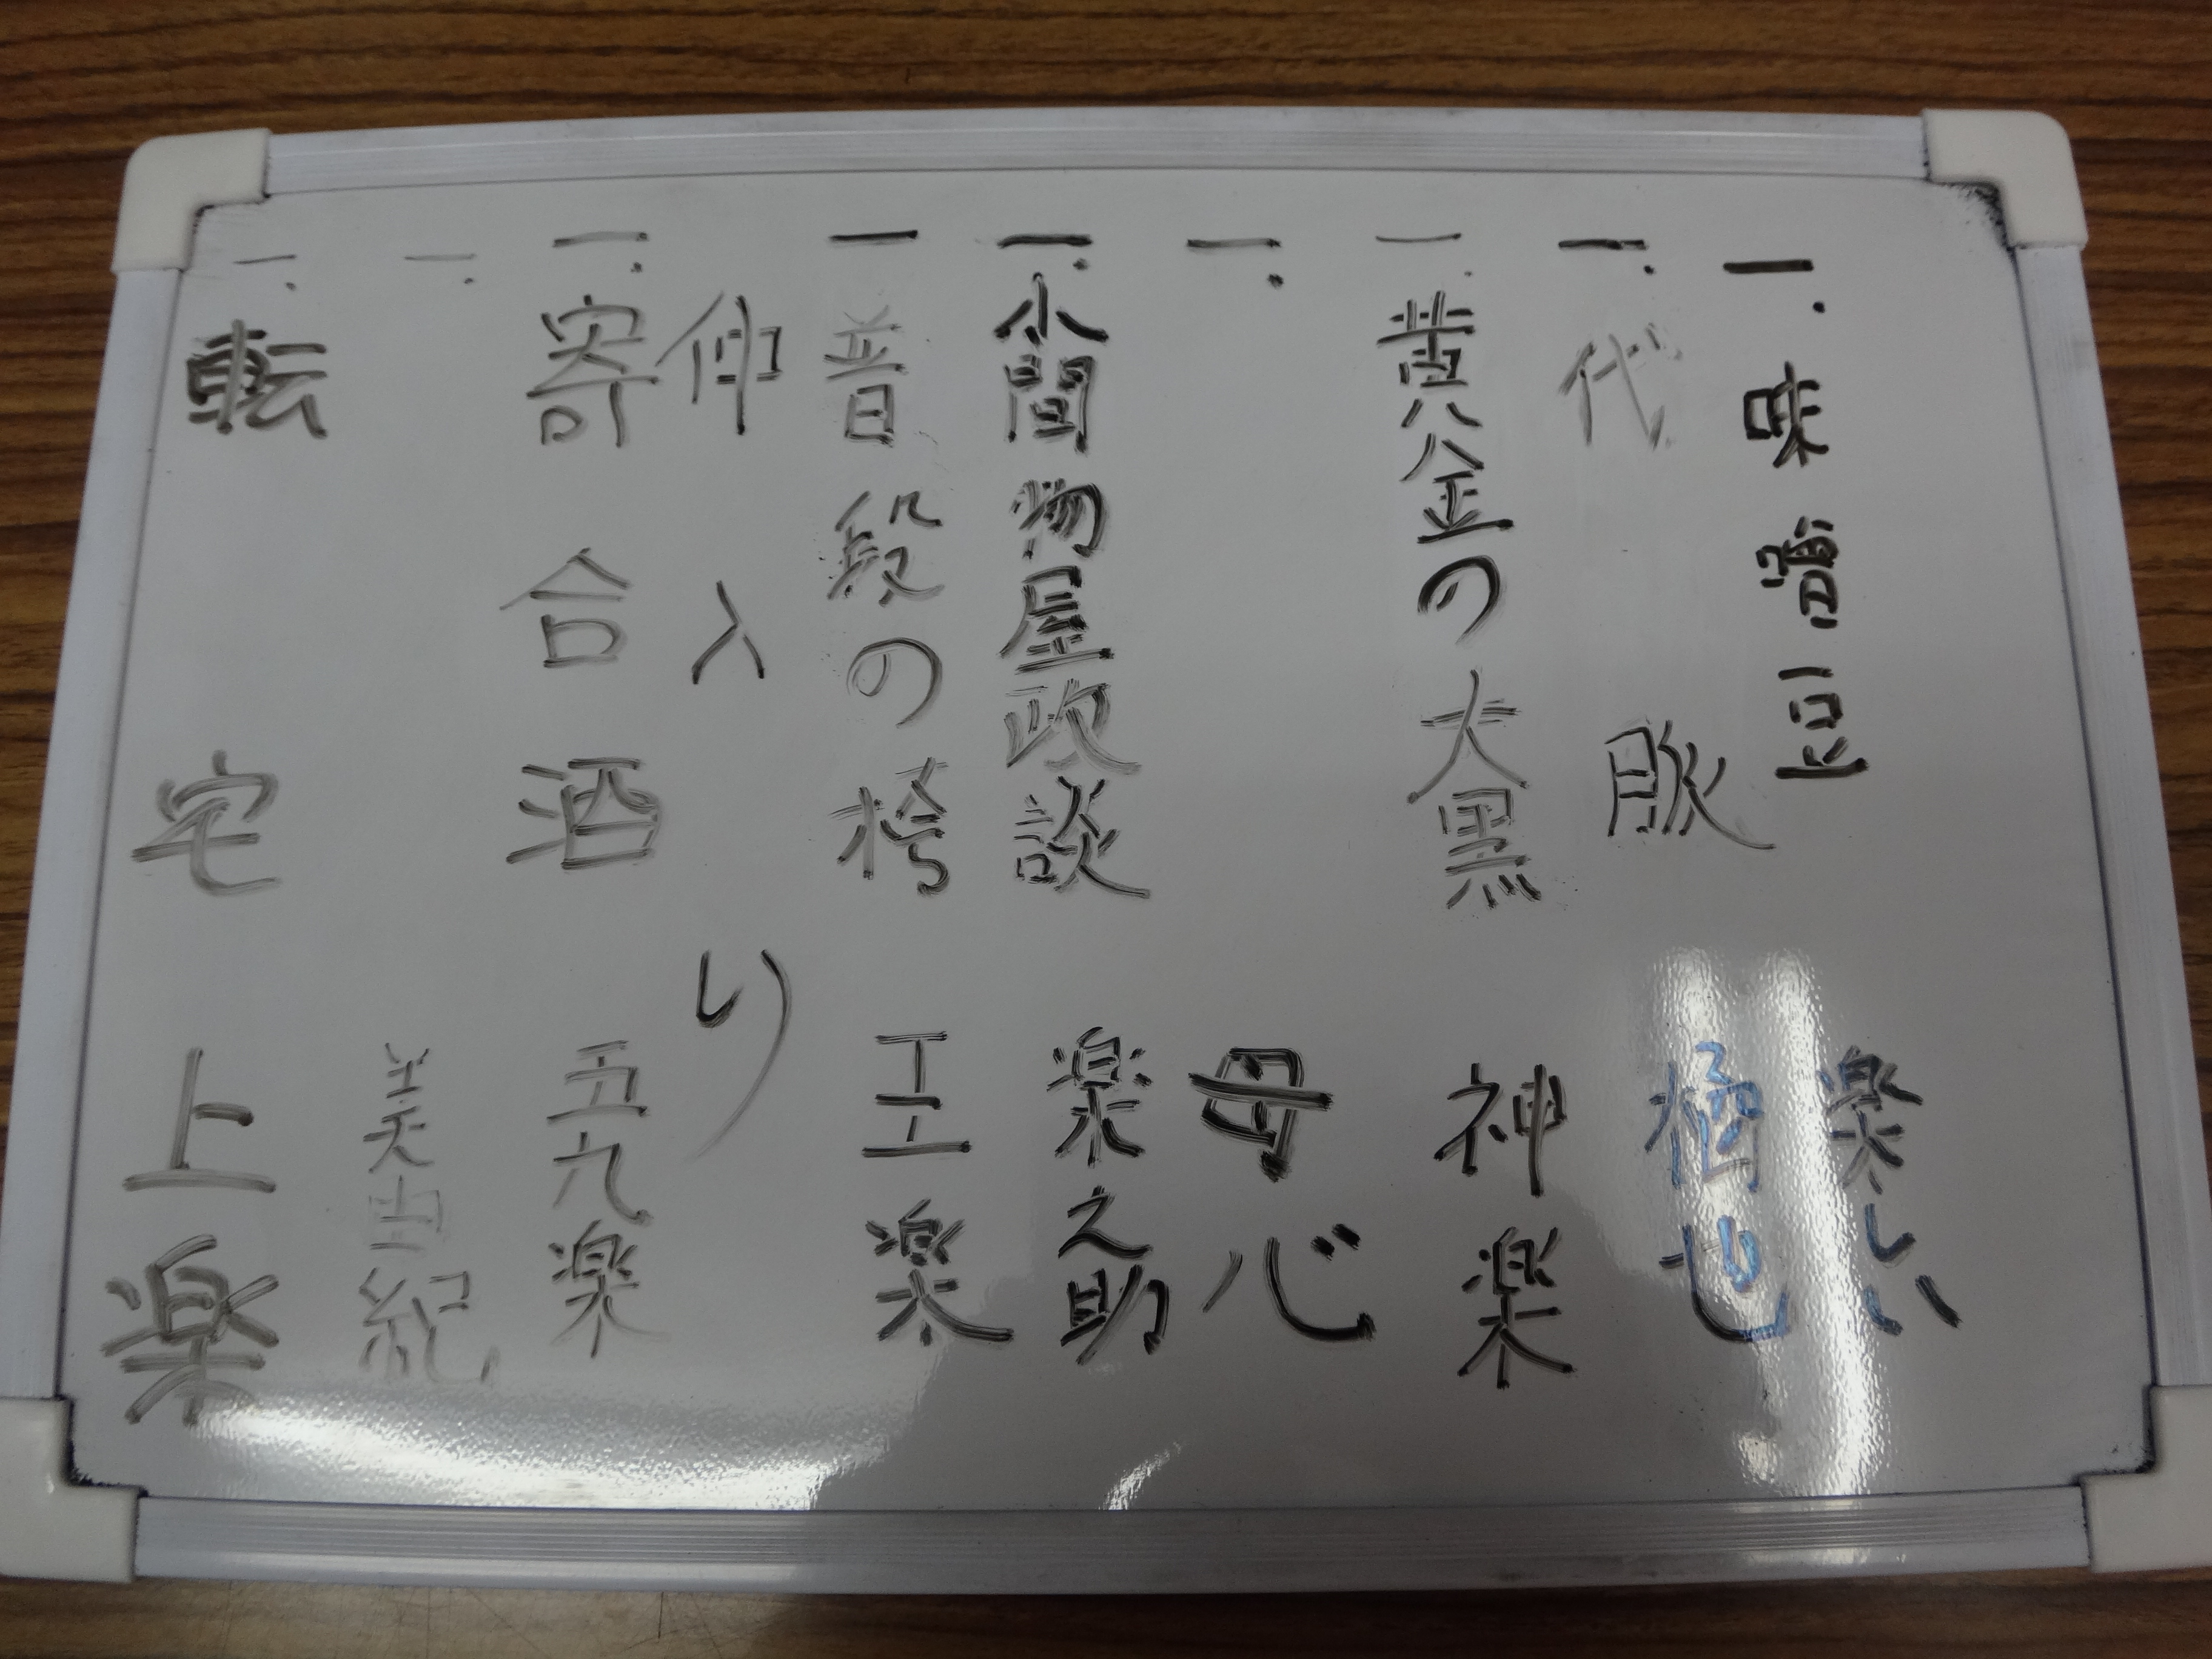 一. 味噌豆 楽しい
一. 代脈 橘也
一. 黄金の大黒 神楽
一. 母心
一. 小間物屋政談 楽之助
一 普段の袴 王楽
仲入り
一. 寄合酒 五九楽
一. 美由紀
一. 転宅 上楽